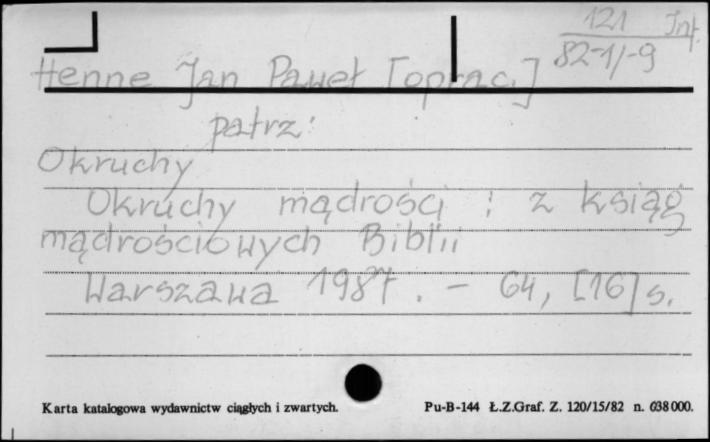 121 Int.
82-1/-9
Henne Jan Paweł [oprac.]
patrz:
Okruchy
Okruchy mądrości : z ksiąg
mądrościowych Biblii
Warszawa 1987. - 64, [16] s.
Karta katalogowa wydawnictw ciągłych i zwartych. Pu-B-144 Ł.Z.Graf. Z. 120/15/82 n. 038 000.